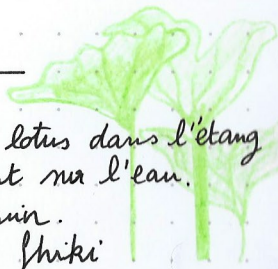 lotus dans l'étang
t sur l'eau.
uin.
Shiki